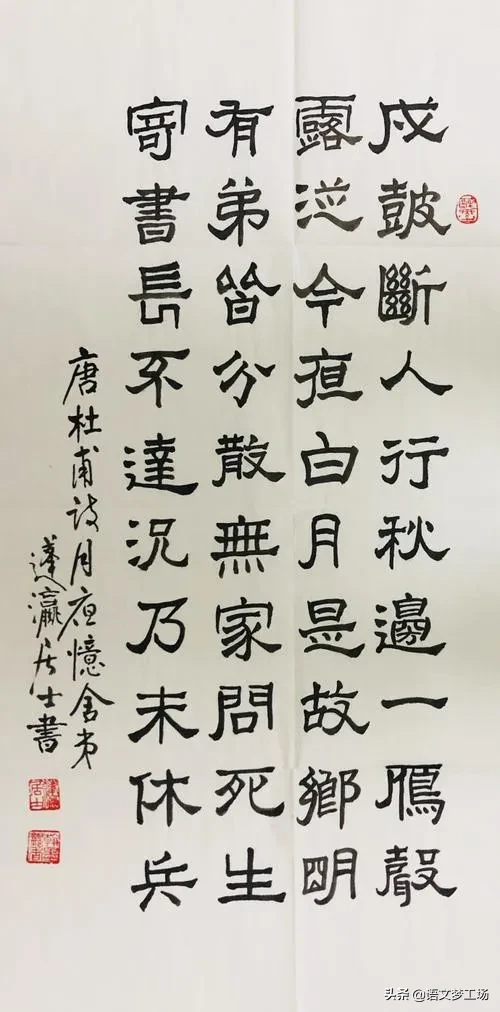 戍皷斷人行秋邊一鴈聲
露從今夜白月是故鄉明
有弟皆分散無家問死生
寄書長不達況乃未休兵
唐杜甫詩月夜憶舍弟
蓬瀛居士書
头条 @语文梦工场